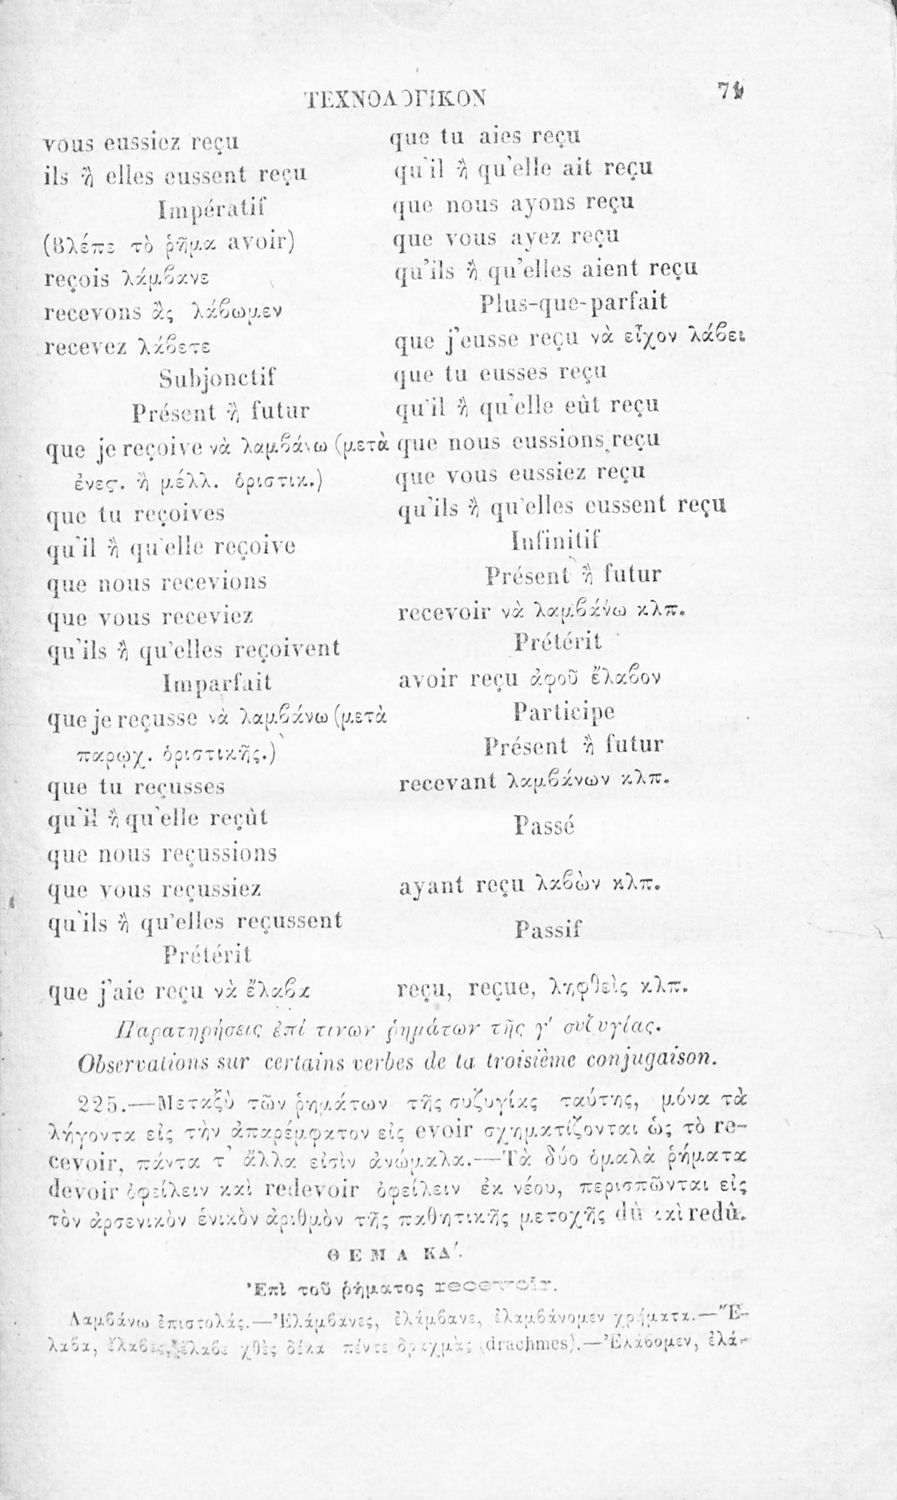 ΤΕΧΝΟΛΟΓΙΚΟΝ
vous eussiez reçu
ils ἢ elles eussent reçu
Impératif
(βλέπε τὸ ῥῆμα avoir)
reçois λάμβανε
recevons ἂς λάβωμεν
recevez λάβετε
Subjonctif
Présent ἢ futur
que je reçoive νὰ λαμβάνω (μετὰ
ἐνεστ. ἢ μέλλ. ὁριστικ.)
que tu reçoives
qu'il ἢ qu'elle reçoive
que nous recevions
que vous receviez
qu'ils ἢ qu'elles reçoivent
Imparfait
que je reçusse νὰ λαμβάνω (μετὰ
παρῳχ. ὁριστικῆς.)
que tu reçusses
qu'il ἢ qu'elle reçût
que nous reçussions
que vous reçussiez
qu'ils ἢ qu'elles reçussent
Prétérit
que j'aie reçu νὰ ἔλαβα
que tu aies reçu
qu'il ἢ qu'elle ait reçu
que nous ayons reçu
que vous ayez reçu
qu'ils ἢ qu'elles aient reçu
Plus-que-parfait
que j'eusse reçu νὰ εἶχον λάβει
que tu eusses reçu
qu'il ἢ qu'elle eût reçu
que nous eussions reçu
que vous eussiez reçu
qu'ils ἢ qu'elles eussent reçu
Infinitif
Présent ἢ futur
recevoir νὰ λαμβάνω κλπ.
Prétérit
avoir reçu ἀφοῦ ἔλαβον
Participe
Présent ἢ futur
recevant λαμβάνων κλπ.
Passé
ayant reçu λαβὼν κλπ.
Passif
reçu, reçue, ληφθεὶς κλπ.
Παρατηρήσεις ἐπί τινων ῥημάτων τῆς γ' συζυγίας.
Observations sur certains verbes de la troisième conjugaison.
225.—Μεταξὺ τῶν ῥημάτων τῆς συζυγίας ταύτης, μόνα τὰ
λήγοντα εἰς τὴν ἀπαρέμφατον εἰς evoir σχηματίζονται ὡς τὸ re-
cevoir, πάντα τ' ἄλλα εἰσὶν ἀνώμαλα.—Τὰ δύο ὁμαλὰ ῥήματα
devoir ὀφείλειν καὶ redevoir ὀφείλειν ἐκ νέου, περισπῶνται εἰς
τὸν ἀρσενικὸν ἑνικὸν ἀριθμὸν τῆς παθητικῆς μετοχῆς dû καὶ redû.
ΘΕΜΑ ΚΔ'.
Ἐπὶ τοῦ ῥήματος recevoir.
Λαμβάνω ἐπιστολάς.—Ἐλάμβανες, ἐλάμβανε, ἐλαμβάνομεν χρήματα.—Ἔ-
λαβα, ἔλαβες, ἔλαβε χθὲς δέκα πέντε δραχμὰς (drachmes).—Ἐλάβομεν, ἐλά-